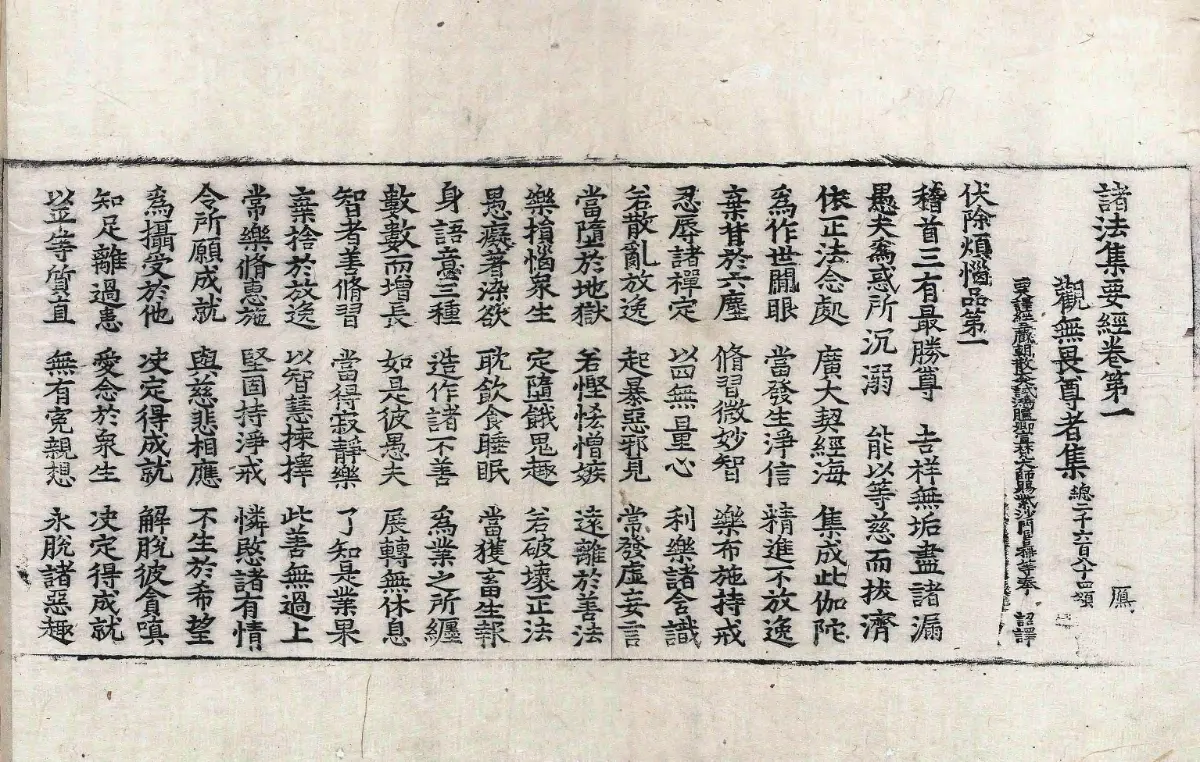 諸法集要經卷第一 鴈
觀無畏尊者集 總二千六百八十四頌
譯經三藏朝散大夫試鴻臚卿宣梵大師賜紫沙門臣日稱等奉 詔譯
伏除煩惱品第一
稽首三有最勝尊 吉祥無垢盡諸漏
愚夫為惑所沉溺 能以等慈而拔濟
依正法念處 廣大契經海 集成此伽陀
為作世間眼 當發生淨信 精進不放逸
棄背於六塵 脩習微妙智 樂布施持戒
忍辱諸禪定 以四無量心 利樂諸含識
若散亂放逸 起暴惡邪見 常發虛妄言
當墮於地獄 若慳悋憎嫉 遠離於善法
樂損惱眾生 定墮餓鬼趣 若破壞正法
愚癡著染欲 耽飲食睡眠 當獲畜生報
身語意三種 造作諸不善 為業之所纏
數數而增長 如是彼愚夫 展轉無休息
智者善脩習 當得寂靜樂 了知是業果
棄捨於放逸 以智慧揀擇 此善無過上
常樂脩惠施 堅固持淨戒 憐愍諸有情
令所願成就 與慈悲相應 不生於希望
為攝受於他 決定得成就 解脫彼貪嗔
知足離過患 愛念於眾生 決定得成就
以平等質直 無有冤親想 永脫諸惡趣